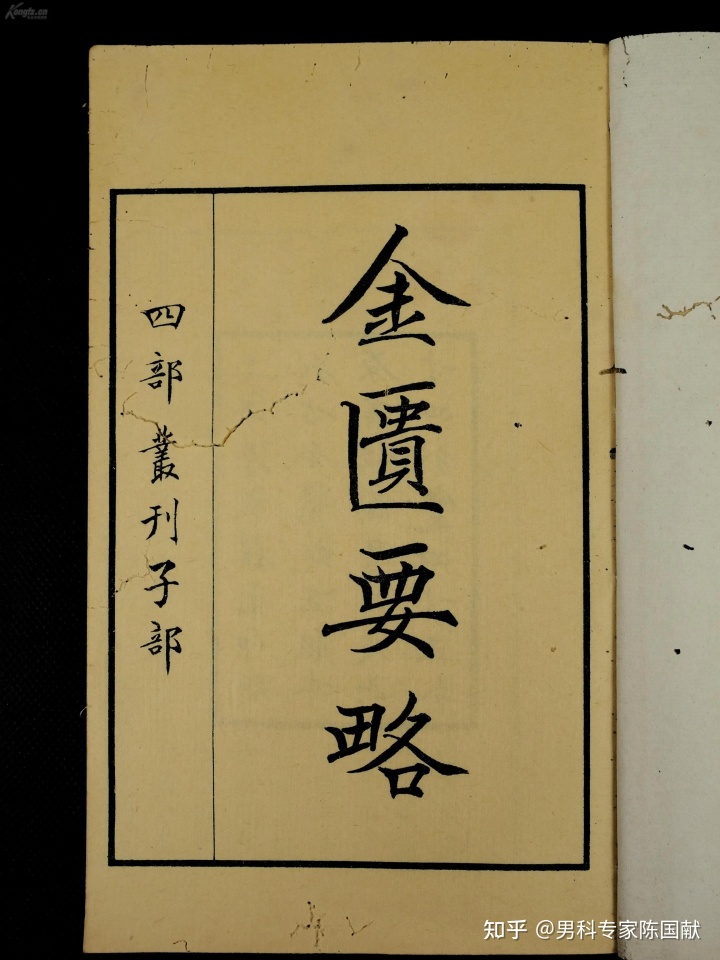 Kongfz.cn
金匱要略
四部叢刊子部
知乎 @男科专家陈国献